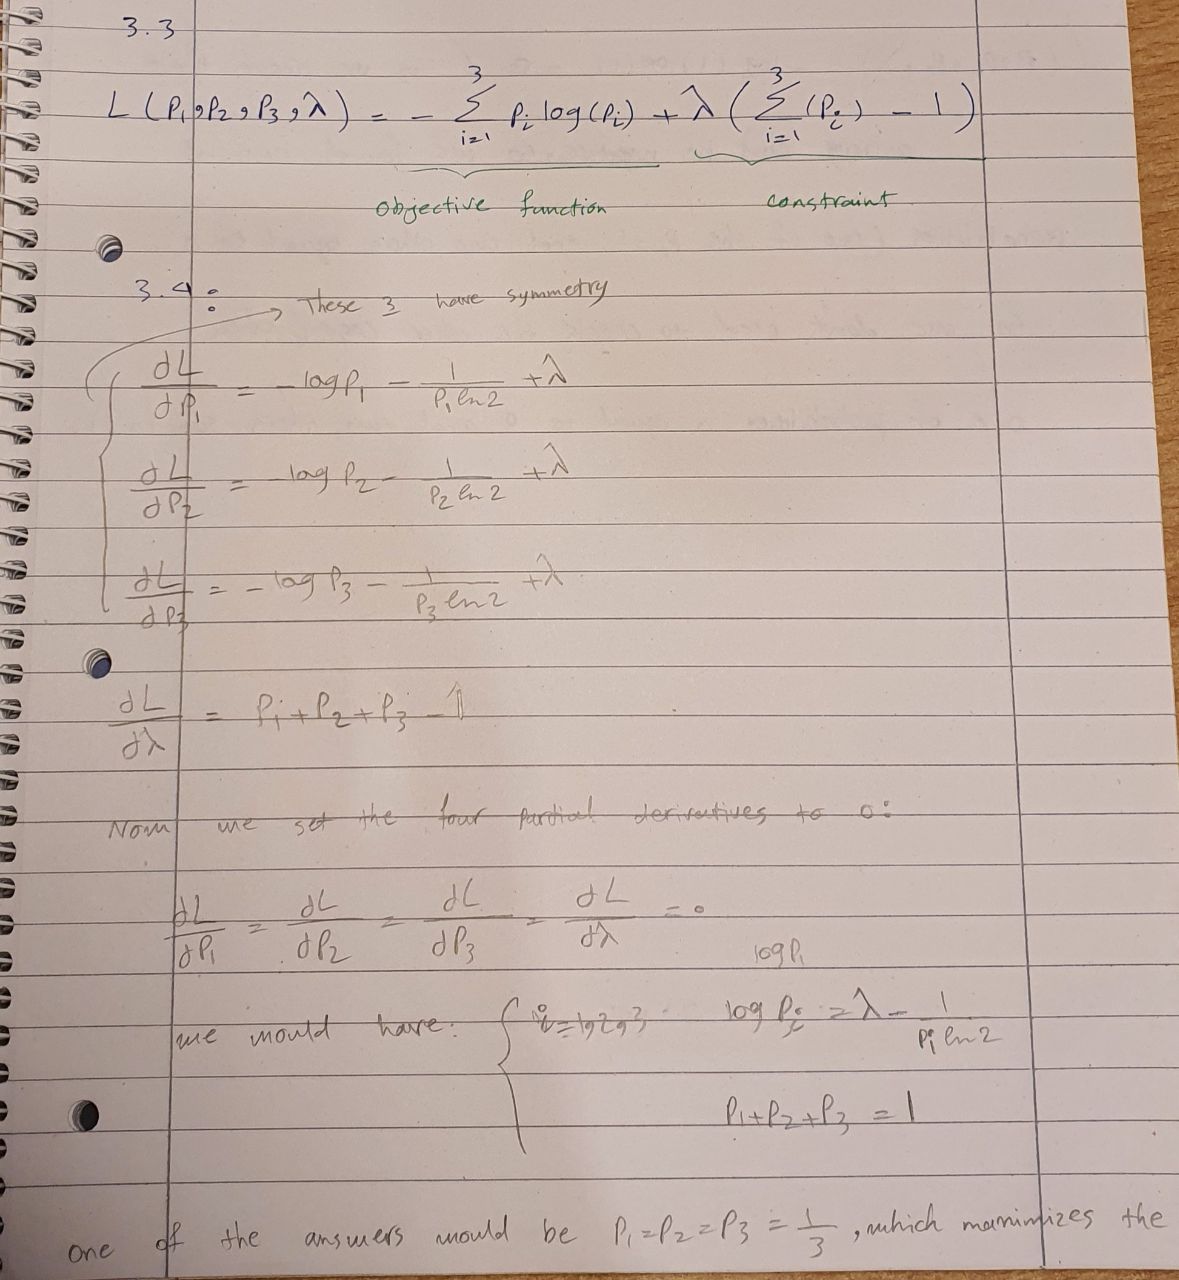 3.3
L(P₁,P₂,P₃,λ) = - ∑_{i=1}^{3} Pᵢ log(Pᵢ) + λ(∑_{i=1}^{3}(Pᵢ) - 1)
objective function constraint
3.4:
These 3 have symmetry
∂L/∂P₁ = -log P₁ - 1/(P₁ ln 2) + λ
∂L/∂P₂ = -log P₂ - 1/(P₂ ln 2) + λ
∂L/∂P₃ = -log P₃ - 1/(P₃ ln 2) + λ
∂L/∂λ = P₁+P₂+P₃ - 1
Now we set the four partial derivatives to 0:
∂L/∂P₁ = ∂L/∂P₂ = ∂L/∂P₃ = ∂L/∂λ = 0
log P₁
we would have: { i=1,2,3 log Pᵢ = λ - 1/(Pᵢ ln 2)
P₁+P₂+P₃ = 1
one of the answers would be P₁=P₂=P₃ = 1/3, which the